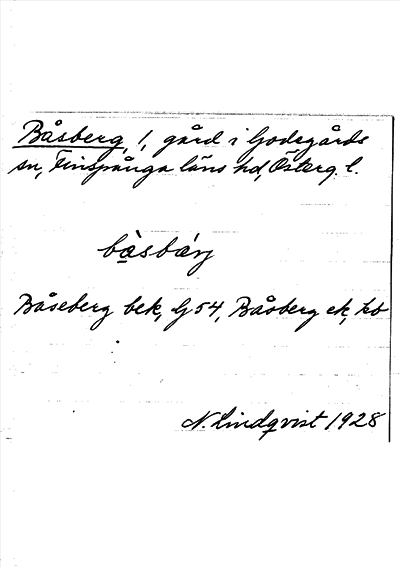 Båsberg, 1, gård i Godegårds
sn, Finspånga läns hd, Österg. l.
bàsbárj
Båseberg bek, G54, Båsberg ek, kb
N. Lindqvist 1928